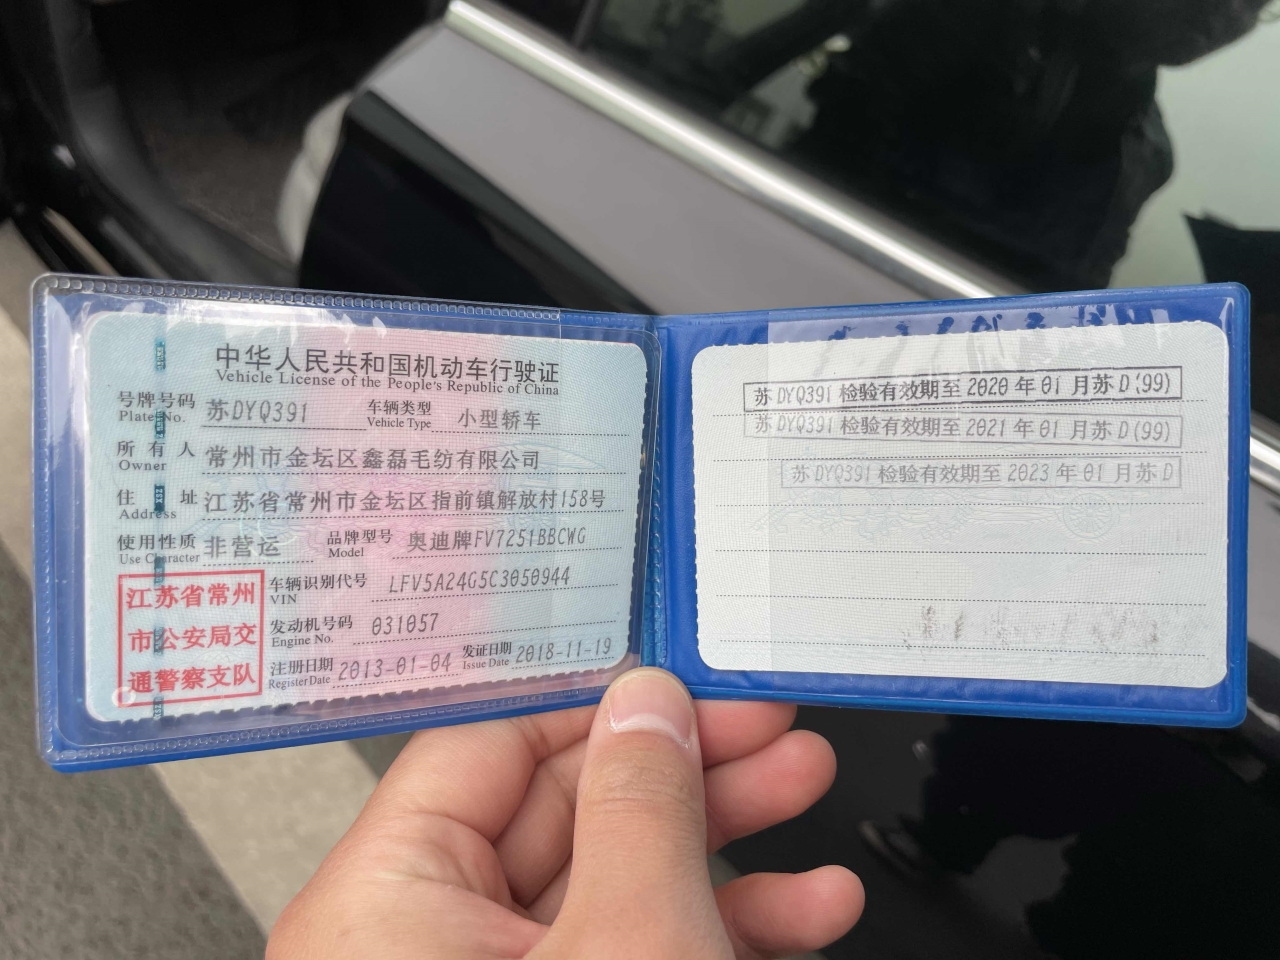 中华人民共和国机动车行驶证
Vehicle License of the People's Republic of China
号牌号码 苏DYQ391 车辆类型 小型轿车
Plate No. Vehicle Type
所有人 常州市金坛区鑫磊毛纺有限公司
Owner
住址 江苏省常州市金坛区指前镇解放村158号
Address
使用性质 非营运 品牌型号 奥迪牌FV7251BBCWG
Use Character Model
江苏省常州
市公安局交
通警察支队
车辆识别代号 LFV5A24G5C3050944
VIN
发动机号码 031057
Engine No.
注册日期 2013-01-04 发证日期 2018-11-19
Register Date Issue Date
苏DYQ391 检验有效期至 2020 年 01 月苏 D(99)
苏DYQ391 检验有效期至 2021 年 01 月苏 D(99)
苏DYQ391 检验有效期至 2023 年 01 月苏 D